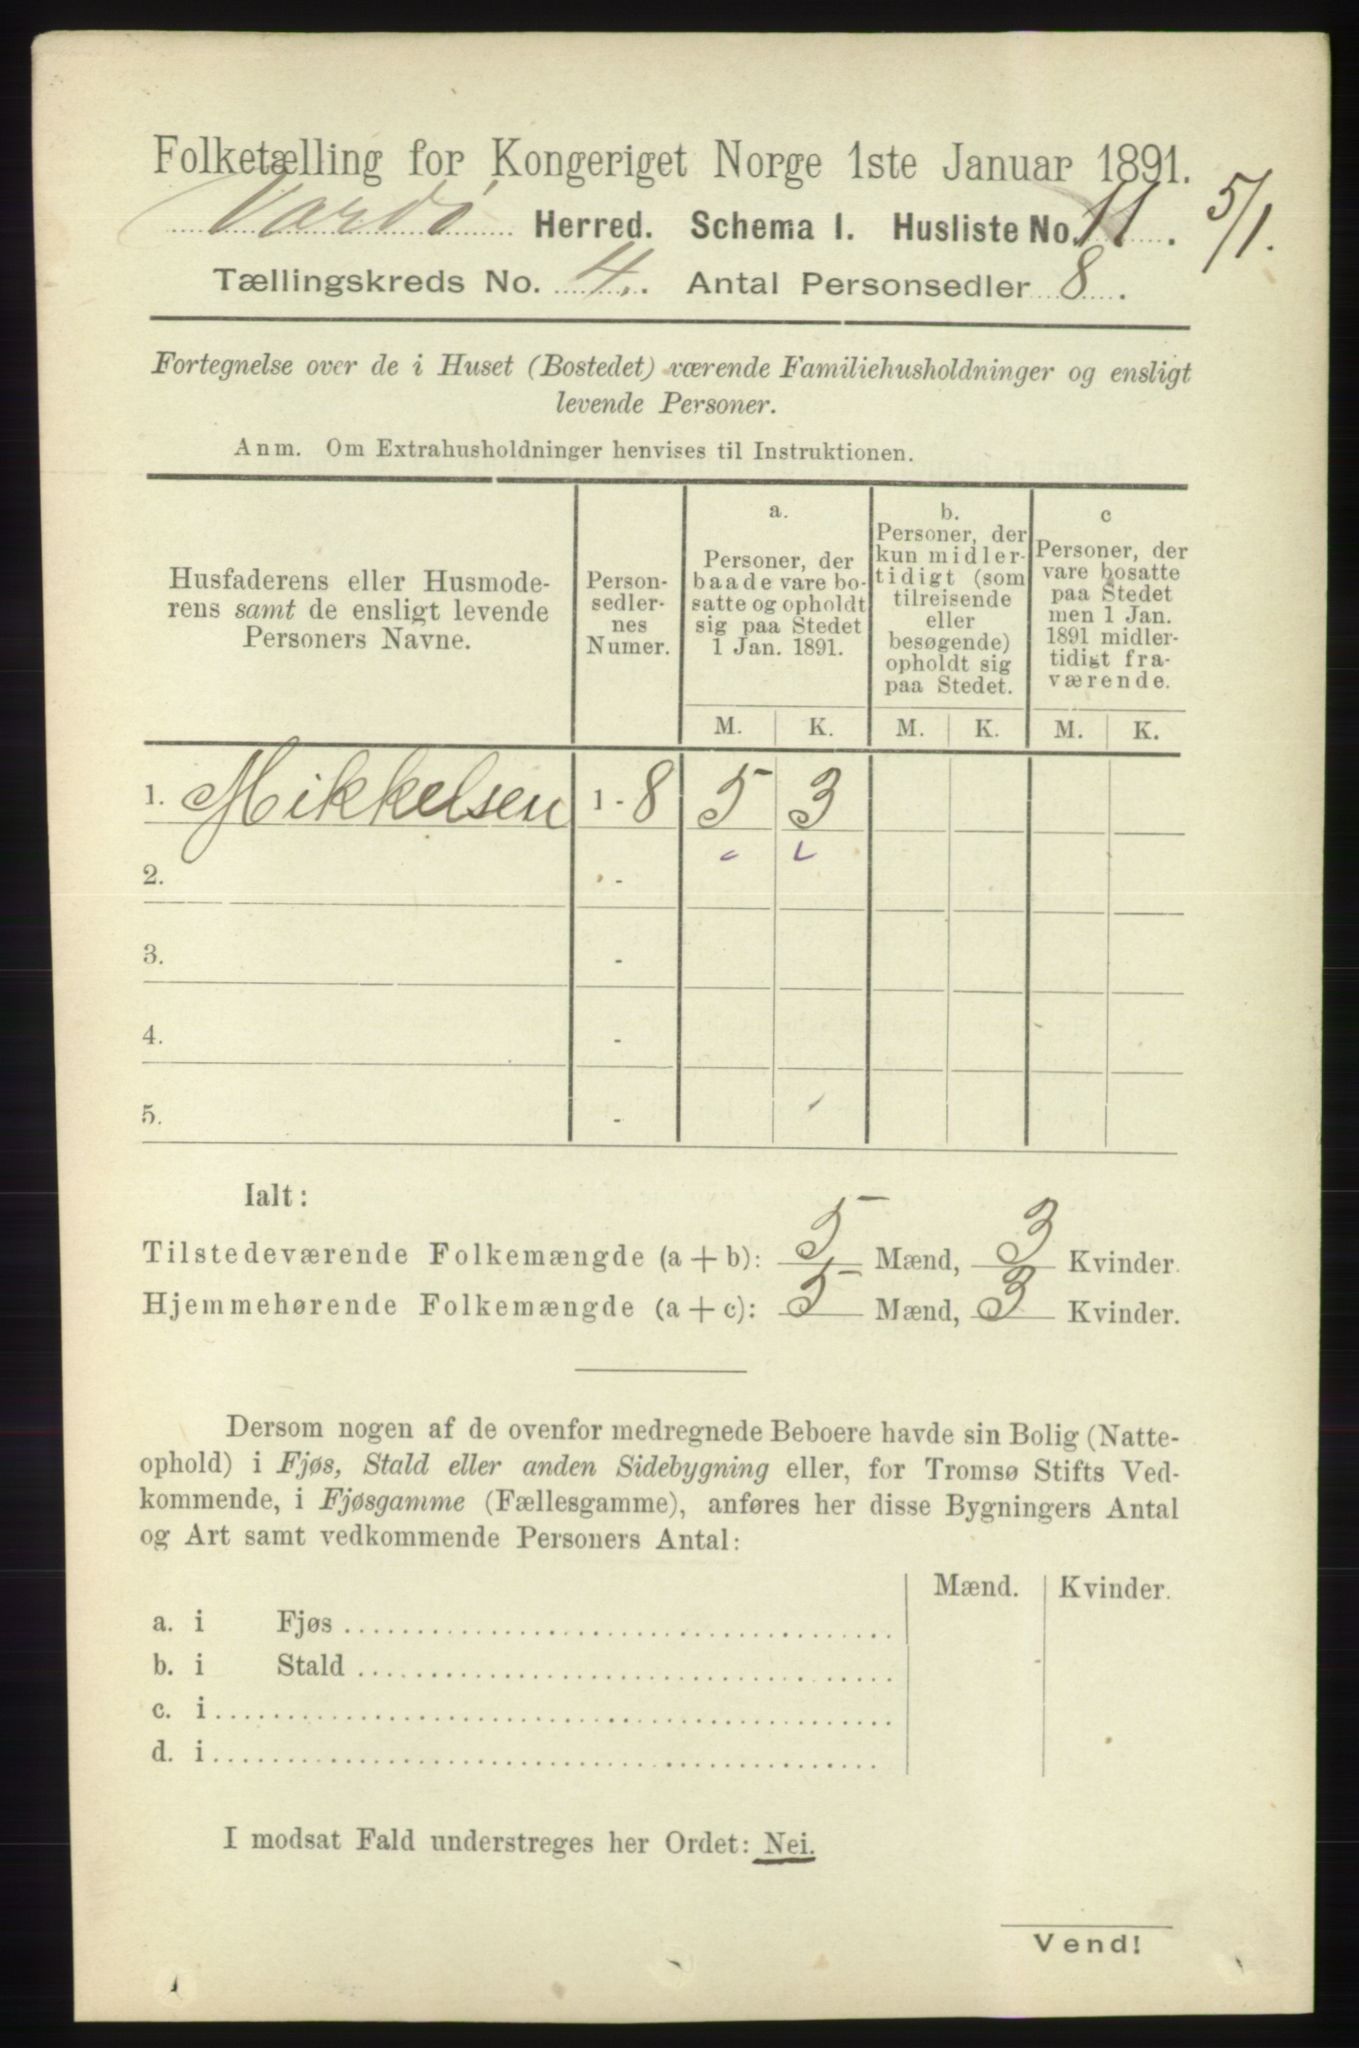 Folketælling for Kongeriget Norge 1ste Januar 1891.
Vardø Herred. Schema I. Husliste No. 11. 5/1.
Tællingskreds No. 4. Antal Personsedler 8.
Fortegnelse over de i Huset (Bostedet) værende Familiehusholdninger og ensligt
levende Personer.
Anm. Om Extrahusholdninger henvises til Instruktionen.
Husfaderens eller Husmode-
rens samt de ensligt levende
Personers Navne.
Person-
sedler-
nes
Numer.
a.
Personer, der
baade vare bo-
satte og opholdt
sig paa Stedet
1 Jan. 1891.
b.
Personer, der
kun midler-
tidigt (som
tilreisende
eller
besøgende)
opholdt sig
paa Stedet.
c
Personer, der
vare bosatte
paa Stedet
men 1 Jan.
1891 midler-
tidigt fra-
værende.
M. K. M. K. M. K.
1. Mikkelsen 1 - 8 5 3
2. -
3. -
4. -
5. -
Ialt:
Tilstedeværende Folkemængde (a + b): 5 Mænd, 3 Kvinder.
Hjemmehørende Folkemængde (a + c): 5 Mænd, 3 Kvinder.
Dersom nogen af de ovenfor medregnede Beboere havde sin Bolig (Natte-
ophold) i Fjøs, Stald eller anden Sidebygning eller, for Tromsø Stifts Ved-
kommende, i Fjøsgamme (Fællesgamme), anføres her disse Bygningers Antal
og Art samt vedkommende Personers Antal:
Mænd. Kvinder.
a. i Fjøs
b. i Stald
c. i
d. i
I modsat Fald understreges her Ordet: Nei.
Vend!